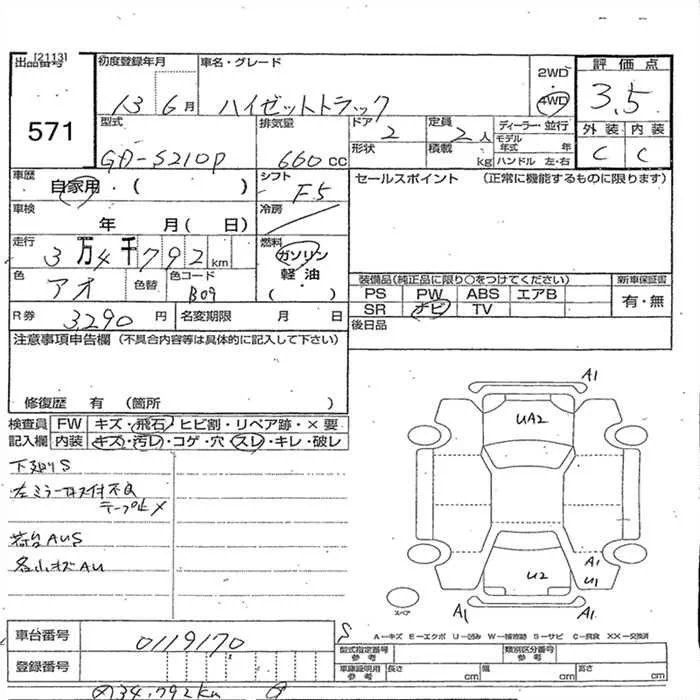 [2113]
出品番号
571
初度登録年月
13 6月
車名・グレード
ハイゼットトラック
2WD
4WD
評価点
3.5
外装 内装
C C
型式
GD-S210P
排気量
660cc
ドア
2
形状
定員
2人
積載
kg
ディーラー・並行
モデル年式 年
ハンドル 左・右
車歴
自家用・( )
シフト
F5
セールスポイント (正常に機能するものに限ります)
車検
年 月( 日)
冷房
走行
3万4千792km
燃料
ガソリン
軽・油
( )
色
アオ
色替
色コード
B09
装備品(純正品に限り○をつけてください)
PS PW ABS エアB
SR ナビ TV
新車保証書
有・無
R券
3,290円
名変期限 月 日
後日品
注意事項申告欄 (不具合内容等は具体的に記入して下さい)
修復歴 有 (箇所 )
検査員
記入欄
FW キズ・飛石・ヒビ割・リペア跡・×要
内装 キズ・汚レ・コゲ・穴・スレ・キレ・破レ
下廻りS
テープ止メ
荷台AUS
各小キズAU
A1
UA2
A1
U1
U2
A1
A1
スペア
S
A-キズ E-エクボ U-凹み W-補修跡 S-サビ C-腐食 XX-交換済
車台番号
0119170
登録番号
型式指定番号
参考
類別区分番号
参考
車庫証明用
参考
長さ
cm
幅
cm
高さ
cm
34,792km